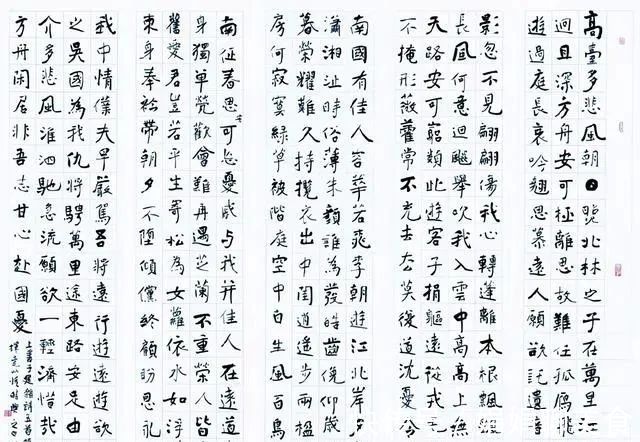 高臺多悲風朝日北林之子在萬里江
迴且深方舟安可極離思故難任孤鴈飛
遊過庭長哀吟翹思慕遠人願欲託遺音
影忽不見翩翩傷我心轉蓬離本根飄颻
長風何意迴飈舉吹我入雲中高高上無
天路安可窮類此遊客子捐軀遠從戎毛
不掩形薇藿常不充去去莫後道沈憂令
南國有佳人容華若桃李朝遊江北岸夕
瀟湘沚時俗薄朱顏誰為發皓齒俛仰歲
暮榮耀難久持攬衣出中閨逍遙步兩楹
房何寂寞綠草被階庭空中自生風百鳥
南征春思可忘憂戚與我并佳人在遠道
身獨單煢歡會難再遇芝蘭不重榮人皆
舊愛君豈若平生寄松為女蘿依水如浮
束身奉衿帶朝夕不墮傾儻終顧盼恩永
我中情僕夫早嚴駕吾將遠行遊遠遊欲
之吳國為我仇將騁萬里途東路安足由
介多悲風淮泗馳急流願欲一輕濟惜哉
方舟閑居非吾志甘心赴國憂